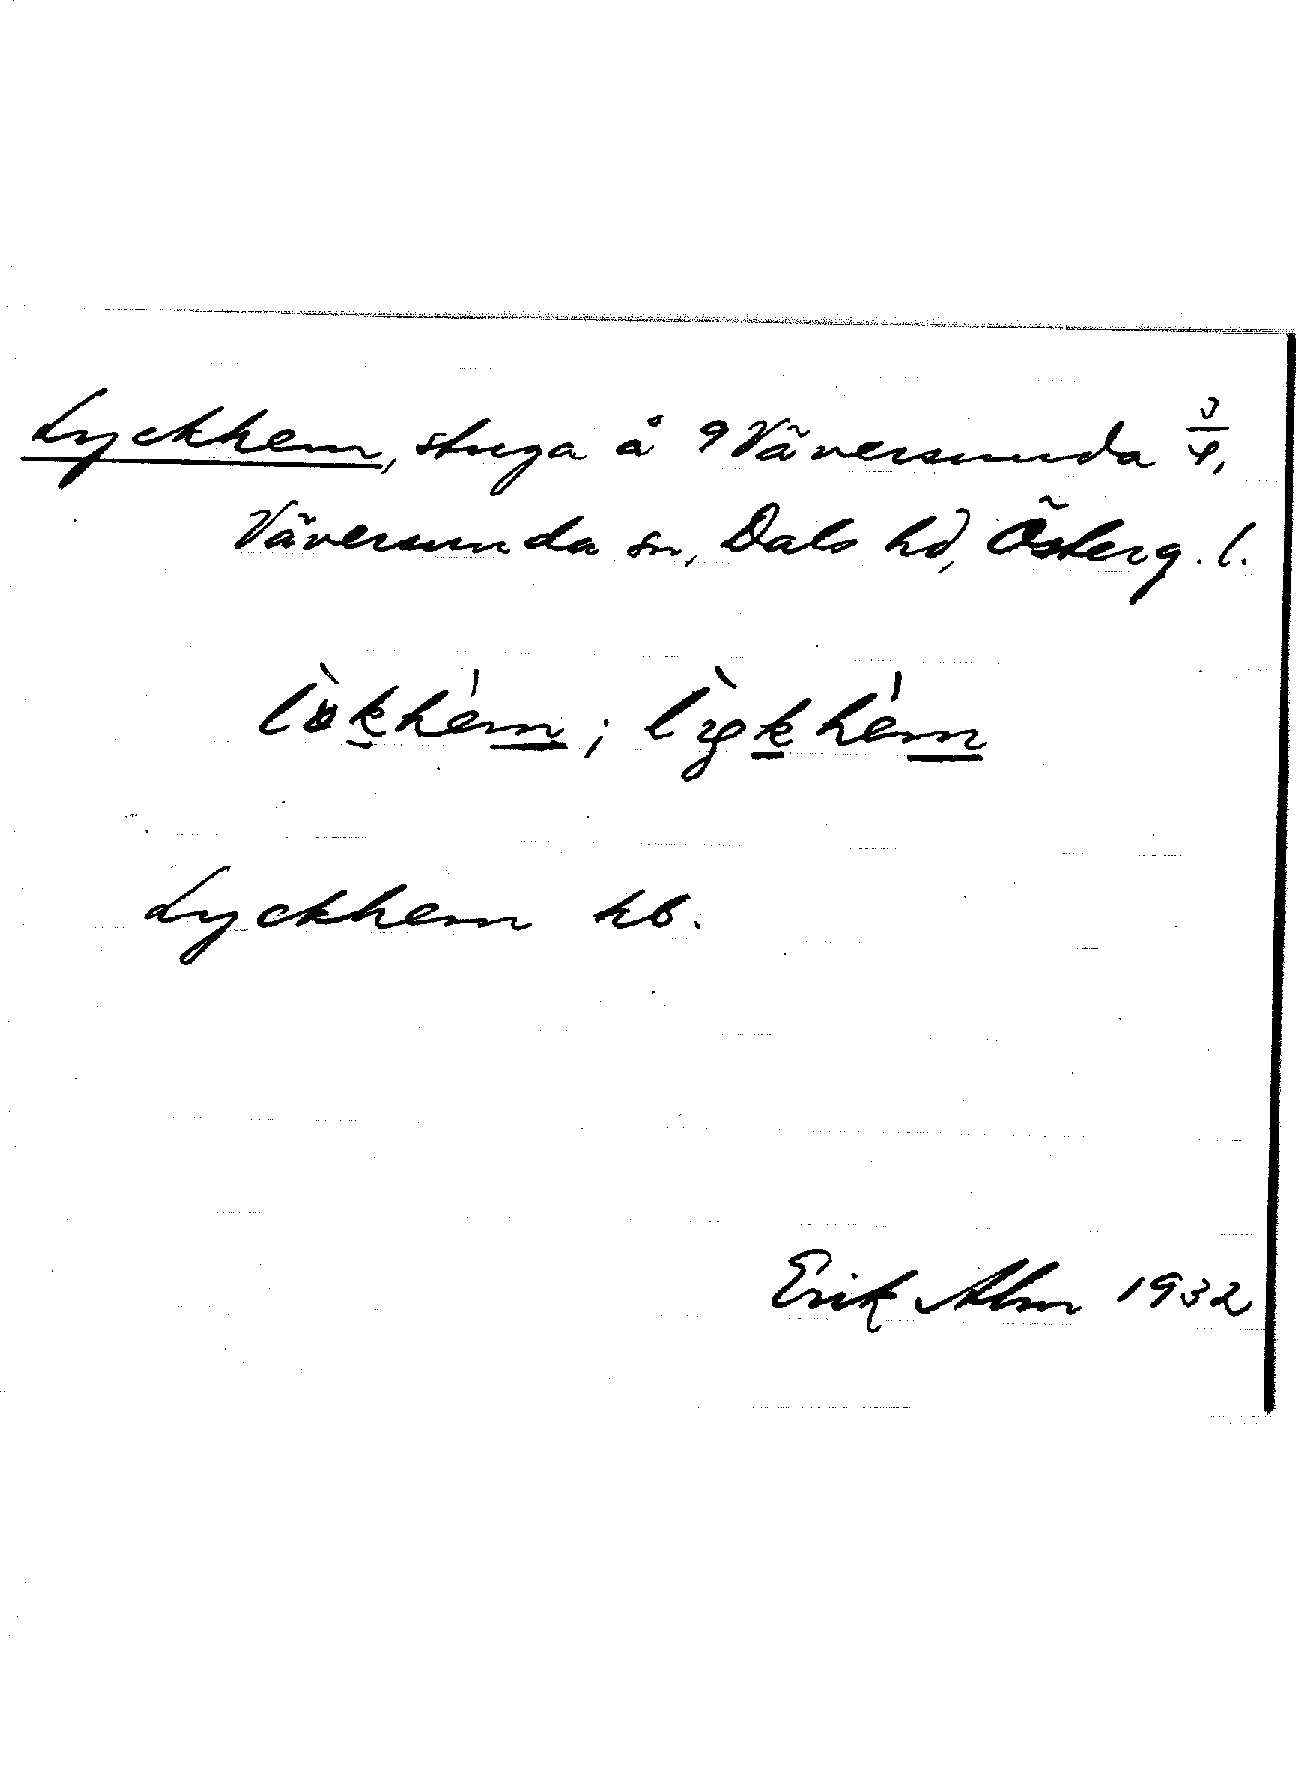 Lyckhem, stuga å 9 Väversunda 3/4,
Väversunda sn, Dals hd, Österg. l.
lò̵khém; lỳkhém
Lyckhem hb.
Erik Alm 1932